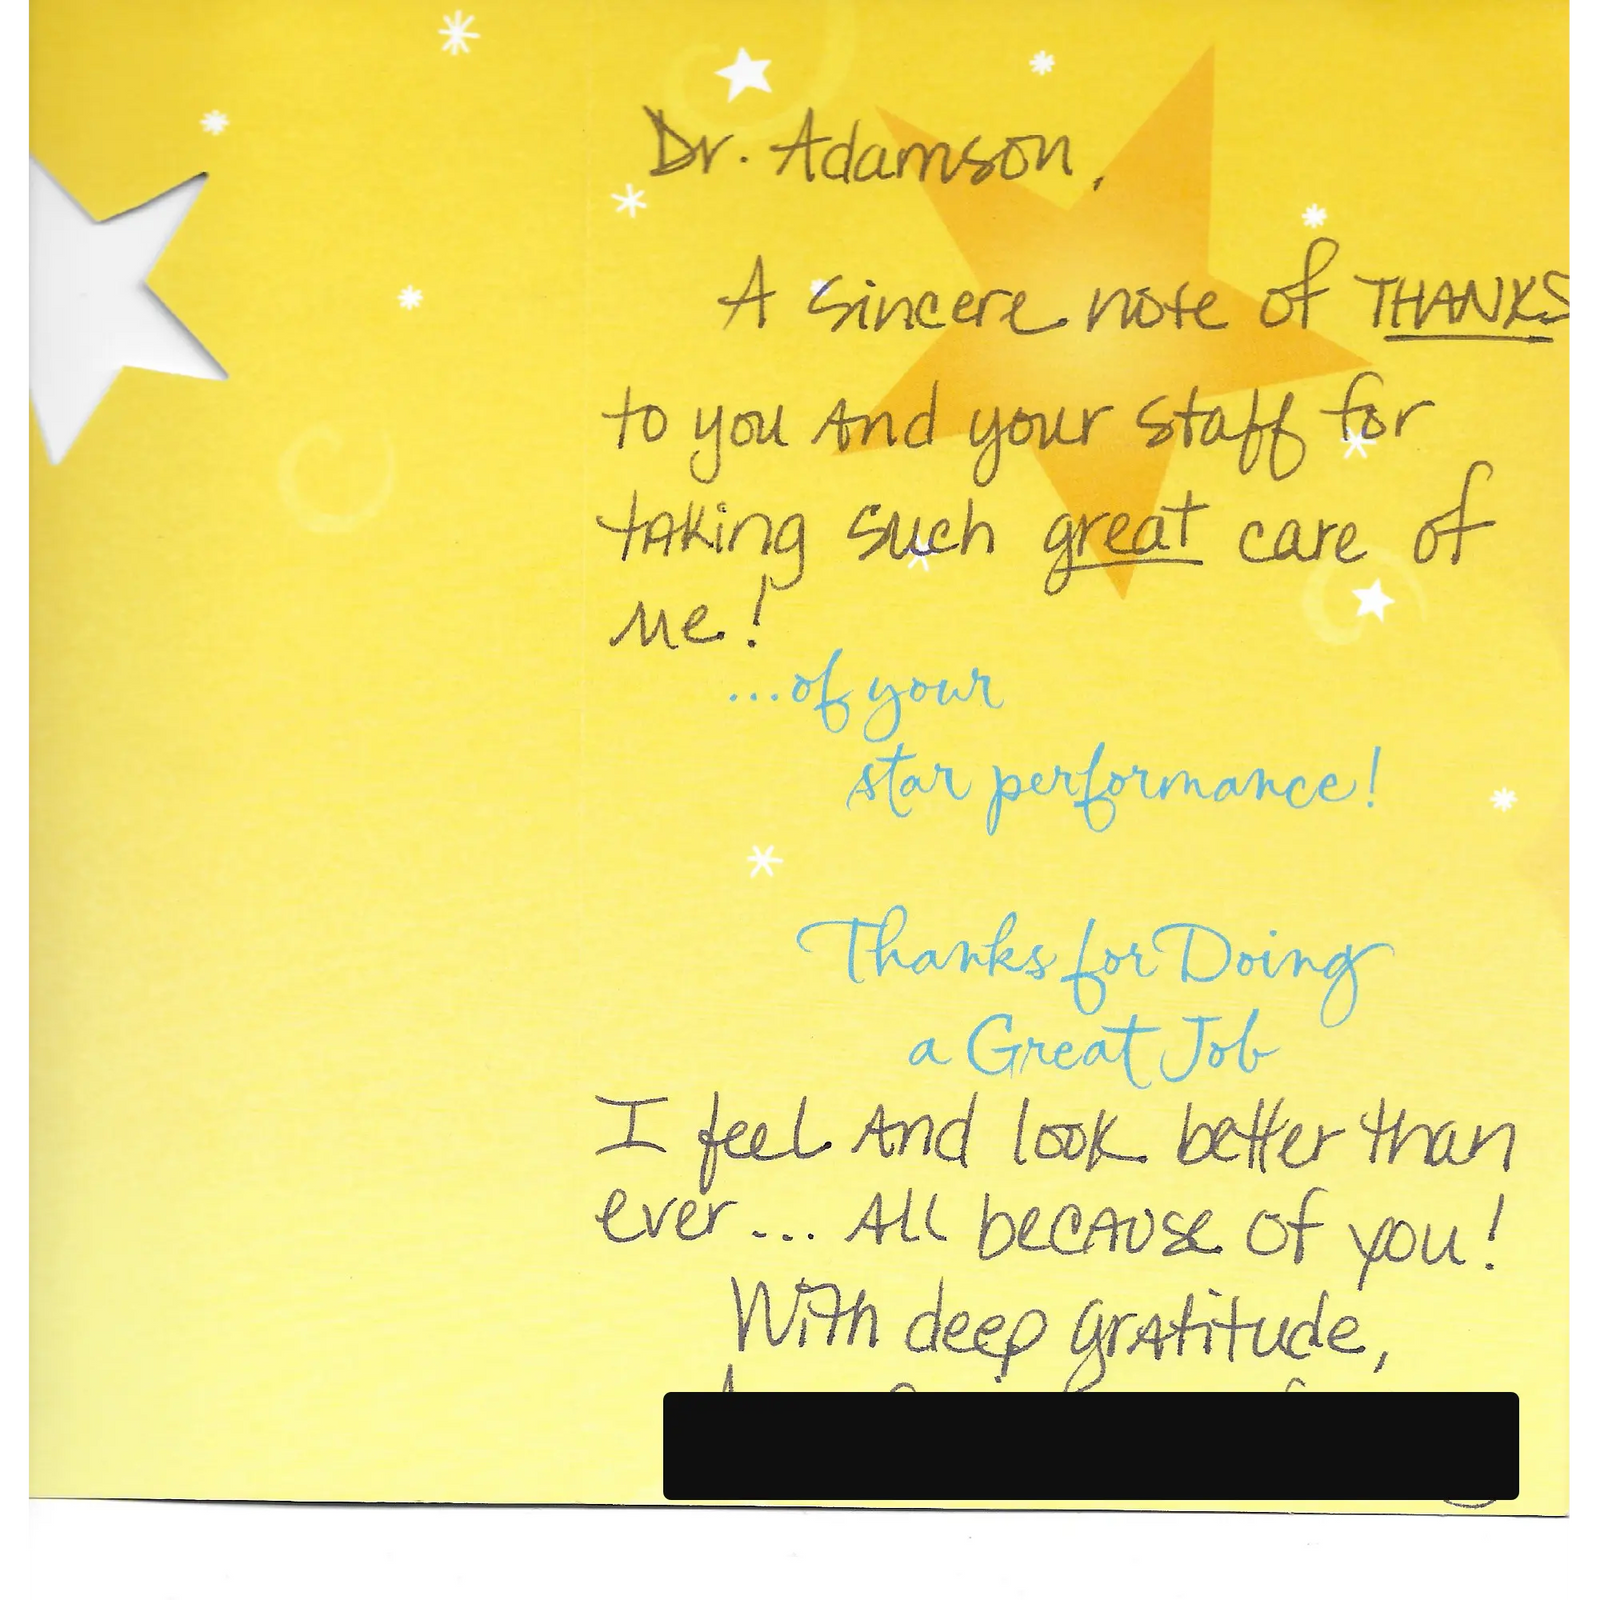 Dr. Adamson,
A sincere note of THANKS
to you And your staff for
taking such great care of
me!
...of your
star performance!
Thanks for Doing
a Great Job
I feel And look better than
ever... All because of you!
With deep gratitude,